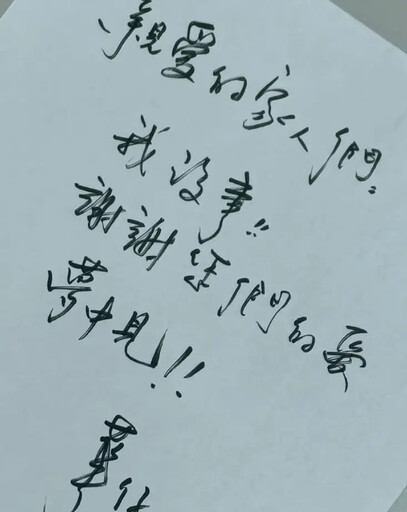 親愛的家人們：
我沒事!!
謝謝您們的愛
夢中見!!